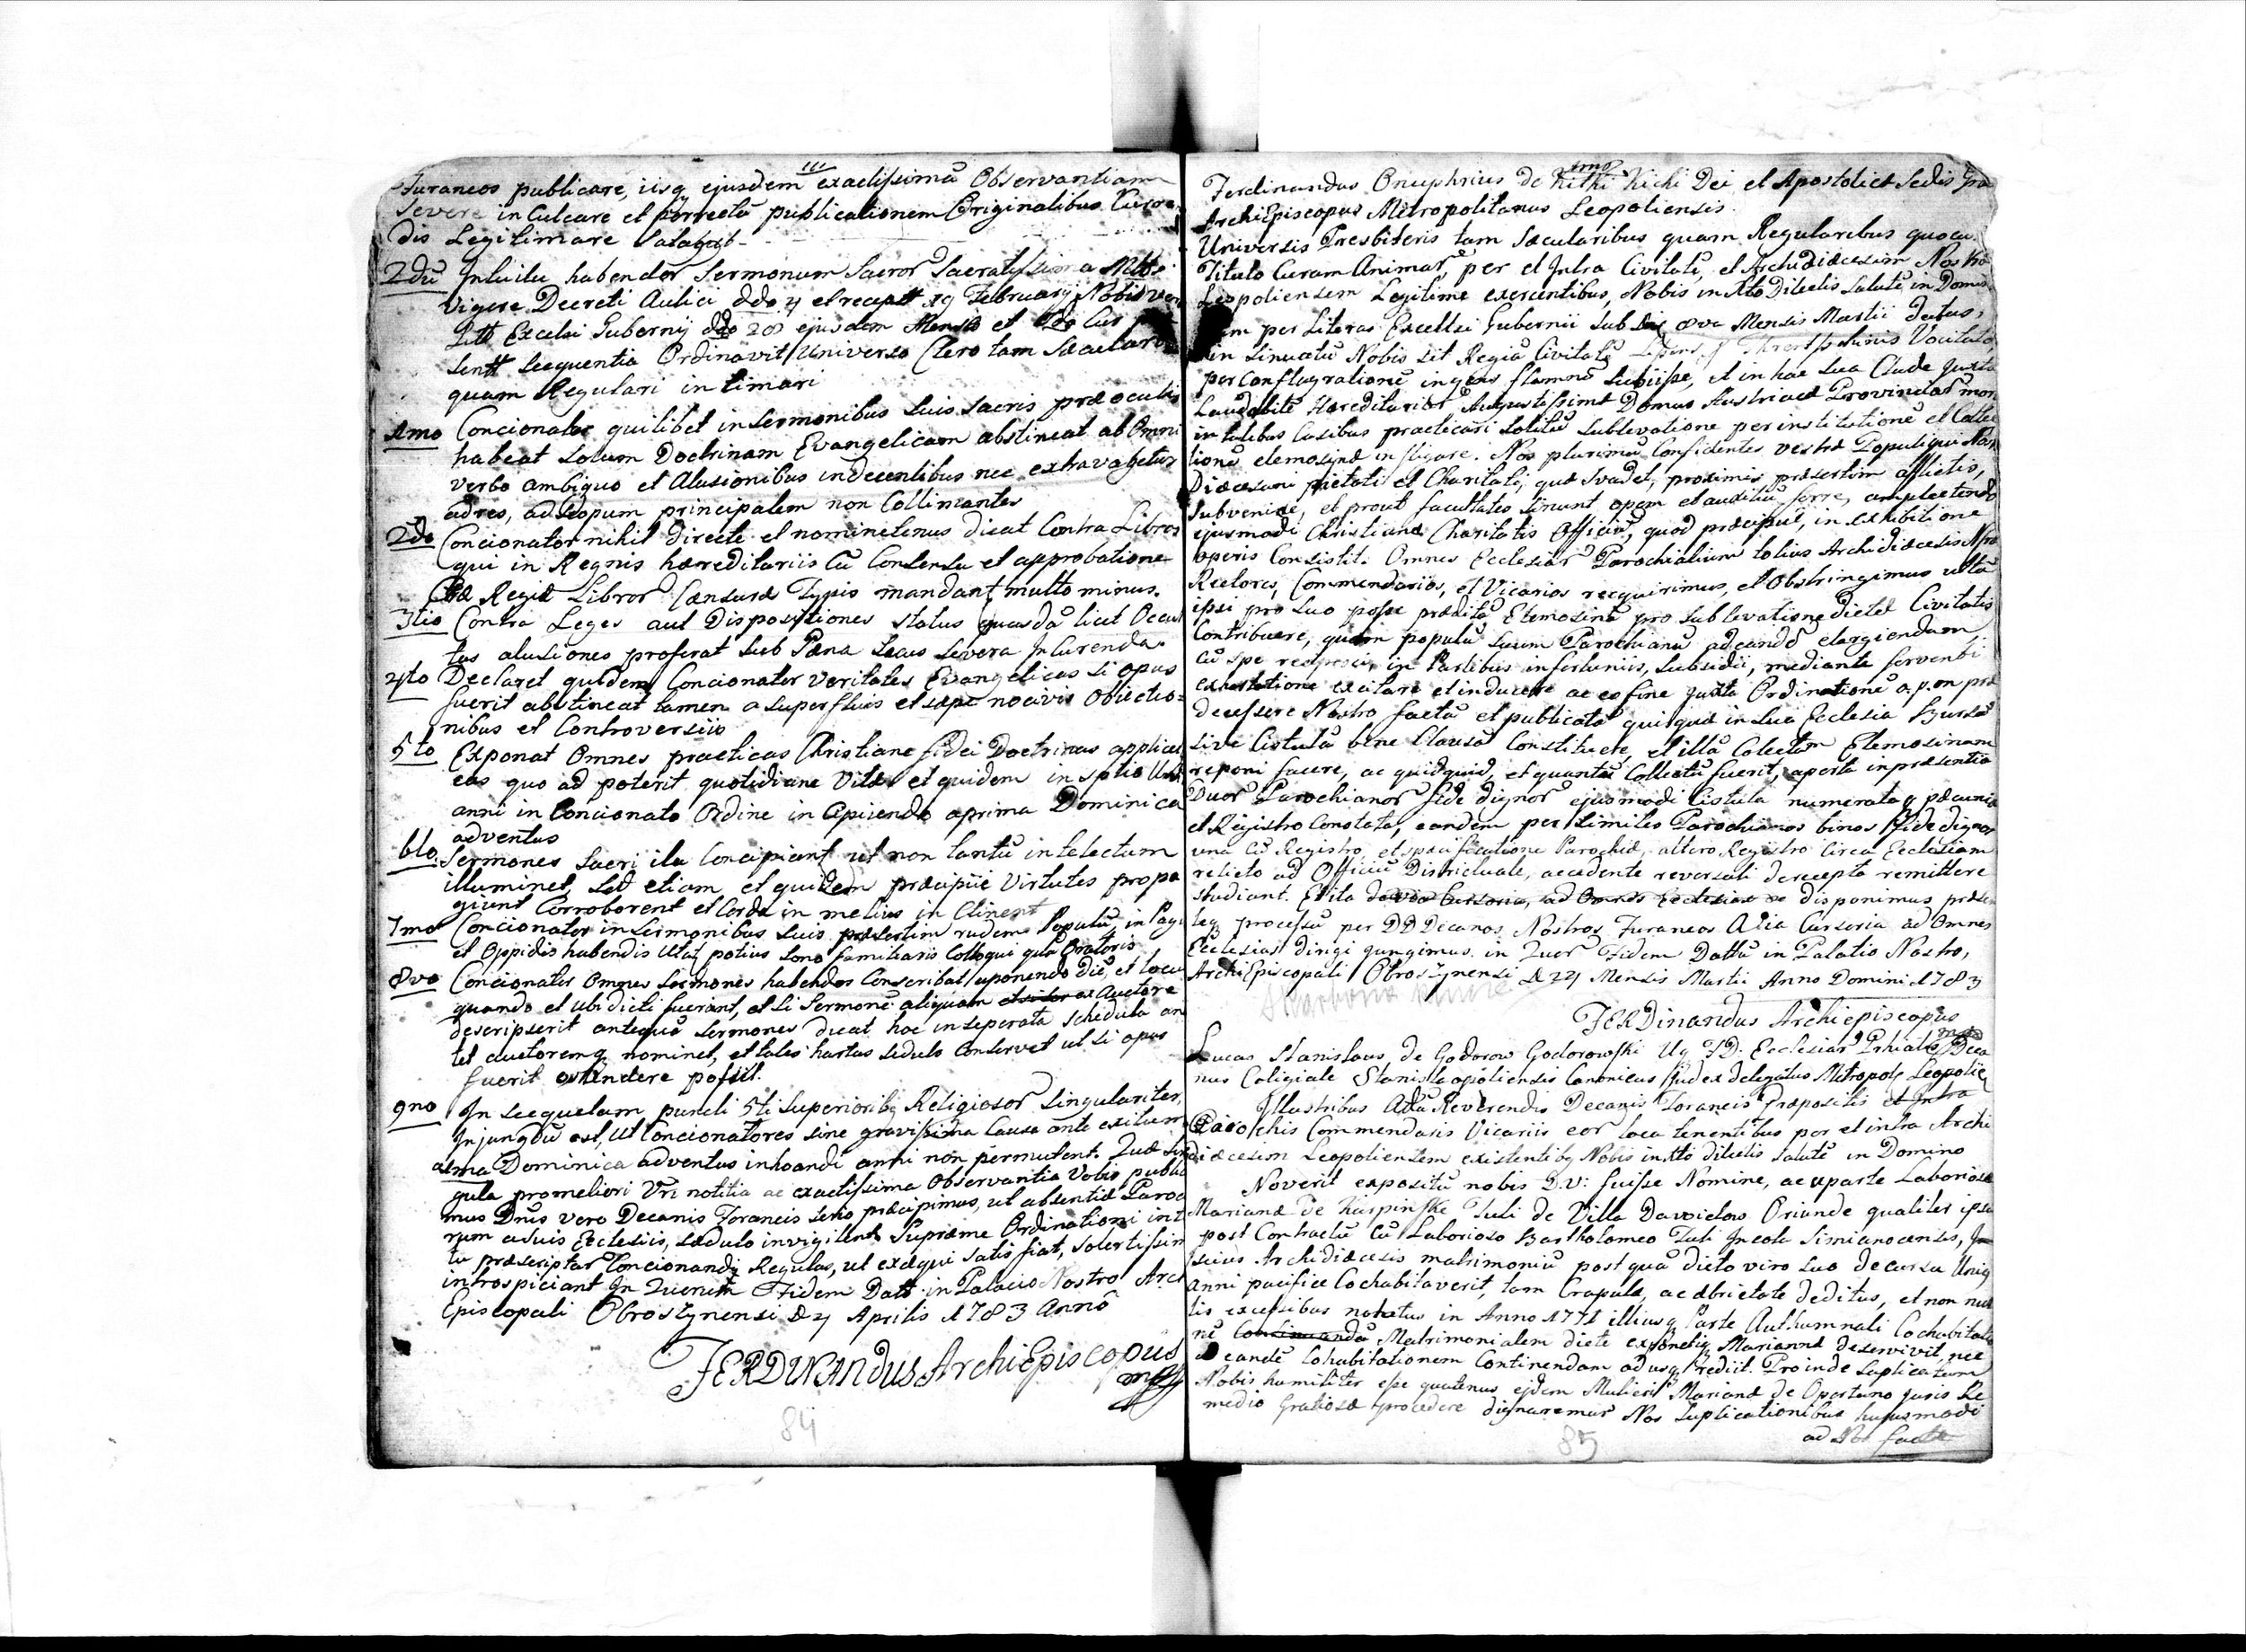 Furaneos publicare, iisq ejusdem exactissimā Observantiam
severe in Culcare et correctā publicationem Originalibus
dis Legitimare satagat
2dū Intuitu habendor Sermonum Sacror Sacratissima
Vigere Decreti Aulici ddo 4 et recept 19 February Nobis
Litt Excelsi Gubernij ddo 20 ejusdem Mensis et
sentt seequentia Ordinavit Universo Clero tam Saeculari
quam Regulari in timari
1mo Concionator quilibet in Sermonibus suis sacris prae oculis
habeat solum Doctrinam Evangelicam abstineat ab Omni
verbo ambiguo et Alusionibus indecentibus nec extravagetur
ad res, ad scopum principalem non Collimantes
2do Concionator nihil directe et nominetenus dicat Contra Libros
qui in Regnis haereditariis Cū Consensu et approbatione
Regiae Libror Caensurae Typis mandant, multo minus.
3tio Contra Leges aut Dispositiones status quasdā licet Occul
tas alusiones proferat sub Paena secus severa Incurenda.
4to Declaret quidem Concionator veritates Evangelicas si opus
fuerit abstineat tamen a superfluis et saepe nocivis Obiectio=
nibus et Controversiis
5to Exponat Omnes practicas Christiane fidei Doctrinas applicet
eas quo ad poterit quotidiane Vitae et quidem in spatio Unius
anni in Concionato Ordine in Cipiendo a prima Dominica
adventus
6to Sermones Sacri ita Concipiant ut non tantū intelectum
illuminet, sed etiam et quidem praecipue Virtutes propa
giunt Corroborent et Corda in melius in Clinent
7mo Concionator in Sermonibus suis praesertim rudem Populū in Pagis
et Oppidis habendis Utat potius sono familiaris Colloqui quā Oratoris
8vo Concionator Omnes Sermones habendos Conscribat exponendo Diē, et locū
quando et ubi dicti fuerant, et si Sermonē aliquam ex Auctore
descripserit antequā Sermones dicat hoc in seperata Schedula an
tet auctoremq nominet, et tales hartas sedulo Conservet ut si opus
fuerit ostendere possit.
9no In seequelam puncti 5ti superioribq Religiosor singulariter,
Injungdū est, ut Concionatores sine gravissima Causa ante exitum
a 1ma Dominica adventus inhoandi anni non permutent. Quae
gula pro meliori Vri notitia ac exactissima Observantia Vobis publica
mus Dnis vero Decanis Foraneis serio praecipimus, ut absentiae Paroc
rum a suis Ecclesiis, sedulo invigilent Supraeme Ordinationi
tu praescriptar Concionandi Regulas, ut exaequi satis fiat, solertissim
introspiciant In Quorum Fidem Datt in Palacio Nostro Archi
Episcopali Obroszynensi d 4 Aprilis 1783 Anno
FERDINANDUS ArchiEpiscopus
mp
84
Ferdinandus Onuphrius de Kitki Kicki Dei et Apostolicae Sedis Gra
ArchiEpiscopus Metropolitanus Leopoliensis.
Universis Presbiteris tam Saecularibus quam Regularibus quocu
Titulo Curam Animar, per et Intra Civitatē, et Archidiaecesim Nostra
Leopoliensem Legitime exercentibus, Nobis in Xto Dilectis Salutē in Domino
per Literas Excellsi Gubernii sub 8va Mensis Martii datas,
in sinuatū Nobis sit Regiā Civitatē Vocitatā,
per Conflagrationē ingens flamnē subiisse, et in hac sua Clade Juxta
Laudabilē Haereditarior Augustissimae Domus Austriacae Provinciar mor
in talibus Casibus practicari solitū sublevatione per institutionē et Collec
tionē elemosinae in Sligare. Nos plurimū Confidentes vestrae Populi qui Nos
Diaecesani pietati et Charitati, quae svadet, proximis praesertim afflictis,
subvenire, et prout facultates sinunt opem et auxiliū ferre, amplectendo
ejusmodi Christianae Charitatis Officiū, quod praecipuē, in exhibitione
operis Consistit. Omnes Ecclesiar Parochialium totius Archidiaecesis Nrae
Rectores, Commendarios, et Vicarios recquirimus, et Obstringimus
ipsi pro suo posse praedita Elemosina pro sublevatione dictae Civitatis
Contribuere, quam populū suum Parochianū ad eandē elargiendam
Cū spe in Partibus infortuniis, subsidii, mediante fervenbi
exhortatione excitare et inducere ac eo fine juxta Ordinationē a
decessere Nostro factā et publicatā quisque in Sua Ecclesia Bursā
sive Cistulā bene Clausā Constituere, et illā Colectam Elemosinam
reponi facere, ac quidquid, et quantū Collectū fuerit, aperta in praesentia
Duor Parochianor fide dignor ejusmodi Cistula numerataq paecunia
et Registro Constata, eandem per similes Parochianos binos fide dignos
una Cū Registro et spaecificatione Parochiae, altero Registro Circa Ecclesiam
relicto ad Officiū Districtuale, accedente reversali de recepta remittere
studiant. Et ita de via Cursoria, ad Omnes Ecclesias disponimus praesen
teq processū per DD Decanos Nostros Furaneos a Via Cursoria ad Omnes
Ecclesias dirigi jungimus. in Quor Fidem Dattū in Palatio Nostro,
ArchiEpiscopali Obroszynensi d 24 Mensis Martii Anno Domini 1783
FERDinandus Archiepiscopus
mp
Lucas Stanislaus de Godorow Godorowski Ecclesiar Deca
nus Coligiale Stanislaopoliensis Canonicus Judex delegatus Metropol Leopolien
Illustribus Adū Reverendis Decanis Foraneis Praepositis et Intra
Parochis Commendaris Vicariis eor loca tenentibus per et intra Archi
diaecesim Leopoliensem existentibq Nobis in Xto dilectis salutē in Domino
Noverit expositū nobis D.V: fuisse Nomine, ac ex parte Laboriosae
Marianae de Karpinske Tuli de Villa Dawidow Oriunde qualiter ipsa
post Contractū Cū Laborioso Bartholomeo Tuli Incola Simianocensis,
sius Archidiaecesis matrimoniū post quā dicto viro suo decursu Uniq
anni pacifice Cohabitaverit, tam Crapulae, ac ebrietate deditus, et non nul
lis excessibus notatus in Anno 1771 illiusq Parte Authumnali Cohabitatio
nē Continuandā Matrimonialem dicte exponentiq Marianae deservivit, nec
eandē Cohabitationem Continendam ad usq rediit. Proinde suplicatum
Nobis humiliter esse quatenus ejdem Mulieri Marianae de Oportuno juris Re
medio Gratiose procedere dignaremur Nos suplicationibus hujusmodi
ad Nos facta
85